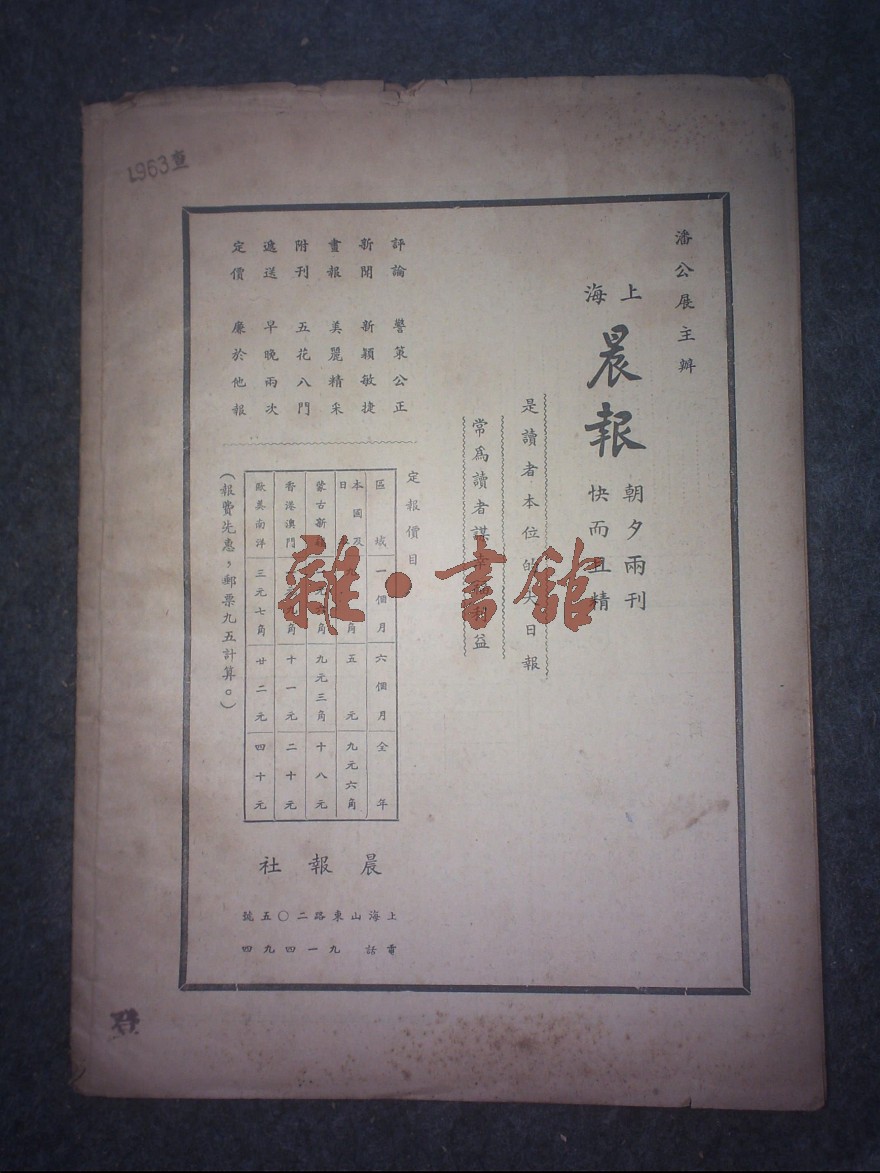 潘公展主辦
上海
晨報
朝夕兩刊
快而且精
是讀者本位的大日報
常爲讀者謀利益
評論 警策公正
新聞 新穎敏捷
畫報 美麗精采
附刊 五花八門
遞送 早晚兩次
定價 廉於他報
定報價目
區域 一個月 六個月 全年
本國及日 角 五元 九元六角
蒙古新 角 九元三角 十八元
香港澳門 九角 十一元 二十元
歐美南洋 三元七角 廿二元 四十元
(報費先惠，郵票九五計算。)
晨報社
上海山東路二〇五號
電話 九一四九四
1963查
雜·書館